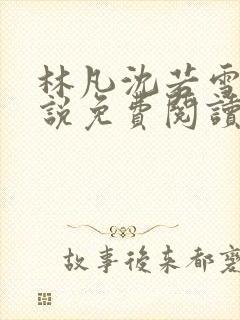 林凡沈若雪
說免費閱讀
故事後來都